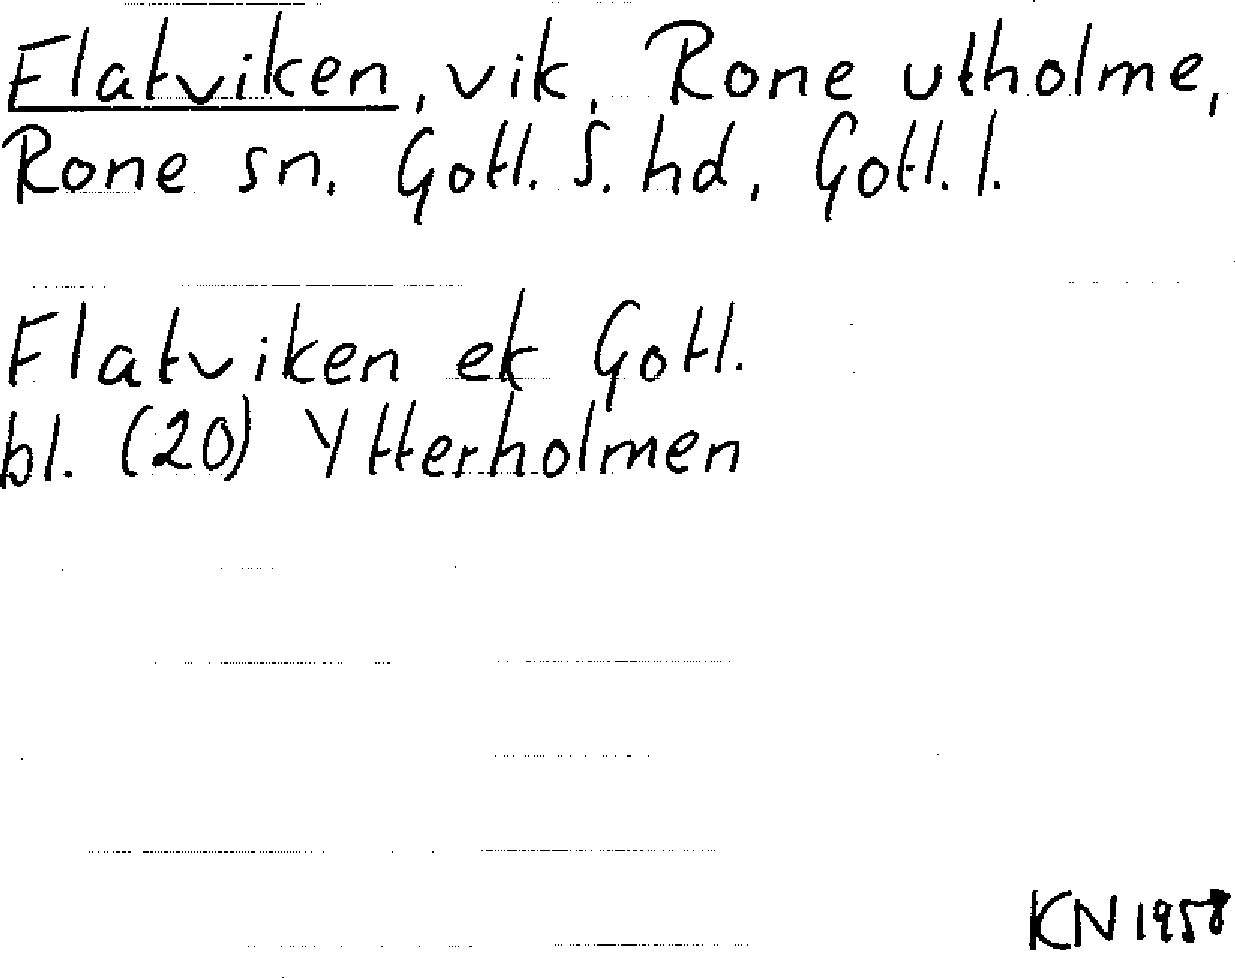 Flatviken, vik, Rone utholme,
Rone sn, Gotl. S. hd, Gotl. l.
Flatviken ek Gotl.
bl. (20) Ytterholmen
KN 1958